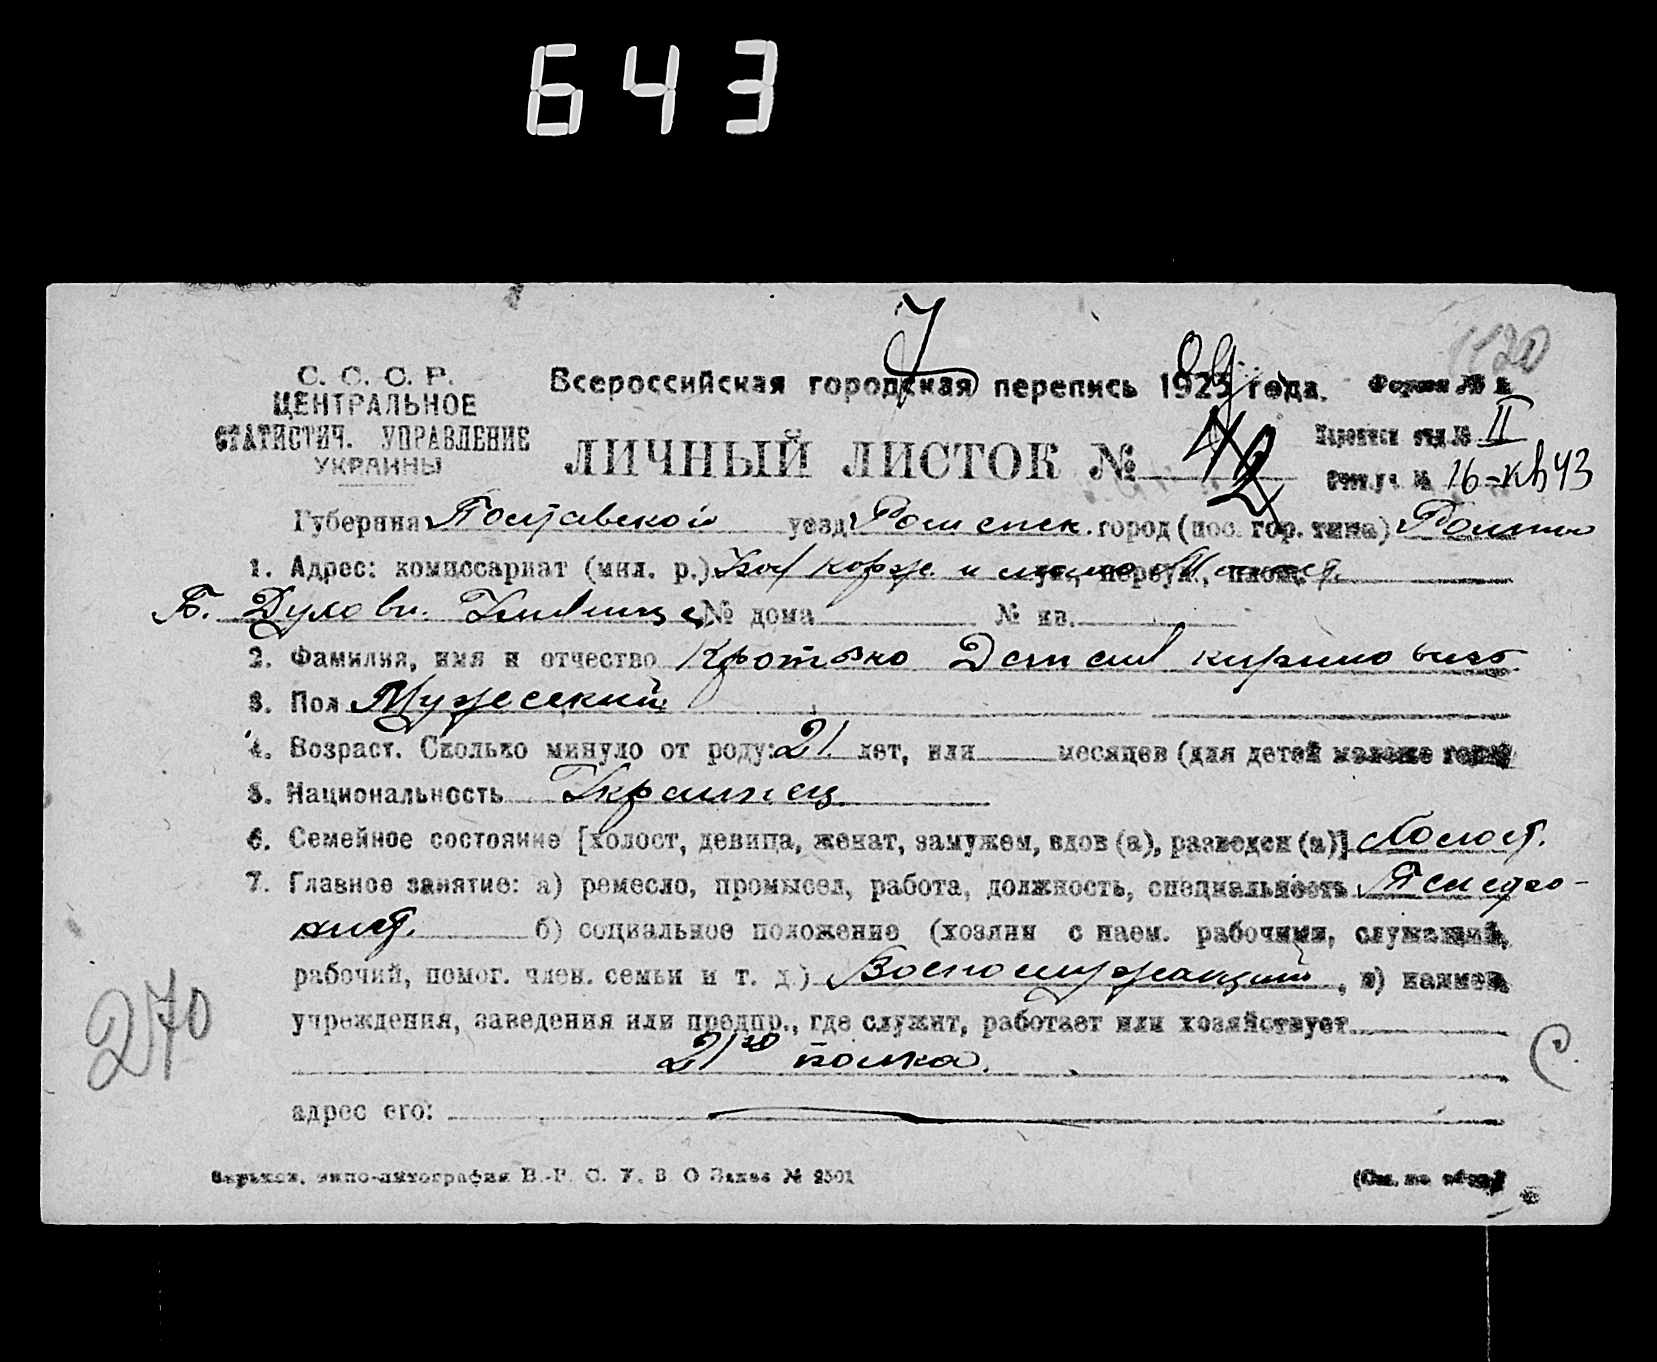 643
7
120
С. С. С. Р.
ЦЕНТРАЛЬНОЕ
СТАТИСТИЧ. УПРАВЛЕНИЕ
УКРАИНЫ
Всероссийская городская перепись 1923 года.
Форма №
ЛИЧНЫЙ ЛИСТОК №
2
Переписн отд. № II
Счетн. уч. № 16-кв 43
Губерния Полтавской уезд город (пос. гор. типа)
1. Адрес: комиссариат (мил. р.) и ул., переул., площ.
Б. № дома № кв.
2. Фамилия, имя и отчество Кротько
3. Пол Мужеский
4. Возраст. Сколько минуло от роду: 21 лет, или месяцев (для детей моложе года)
5. Национальность Украинец
6. Семейное состояние [холост, девица, женат, замужем, вдов (а), разведен (а)] Холост.
7. Главное занятие: а) ремесло, промысел, работа, должность, специальность
б) социальное положение (хозяин с наем. рабочими, служащий,
рабочий, помог. член. семьи и т. д.) Военнослужащий, в) наимен.
учреждения, заведения или предпр., где служит, работает или хозяйствует
21го полка.
адрес его:
270
С
Харьков, типо-литография В.-Р. С. У. В. О Заказ № 2501
(См. на обор.)